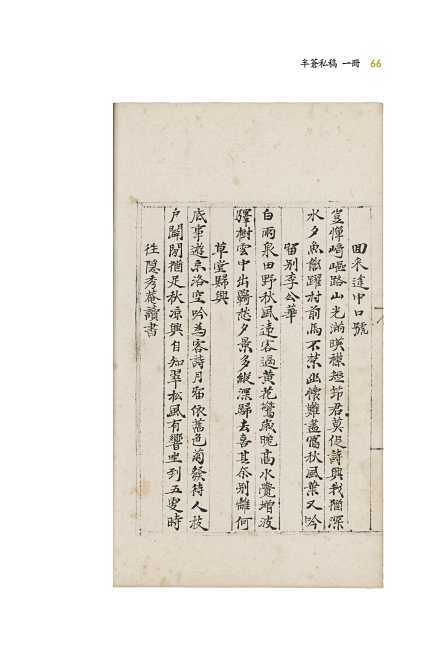 半蒼私稿 一冊 66
回來途中口號
豈憚崎嶇路山光滿暎襟短節君莫促詩興我猶深
水夕魚能躍村前馬不禁幽懷難盡寫秋風葉又吟
留別李公華
白雨泉田野秋風遠客過黃花驚歲晩高水覺增波
驛樹雲中出羇愁夕景多縱深歸去喜其奈別離何
草堂歸興
底事遊京洛空吟為客詩月留依舊色菊發待人枝
戶闢閑猶足秋凉興自知翠松風有響坐到五更時
往隱秀菴讀書